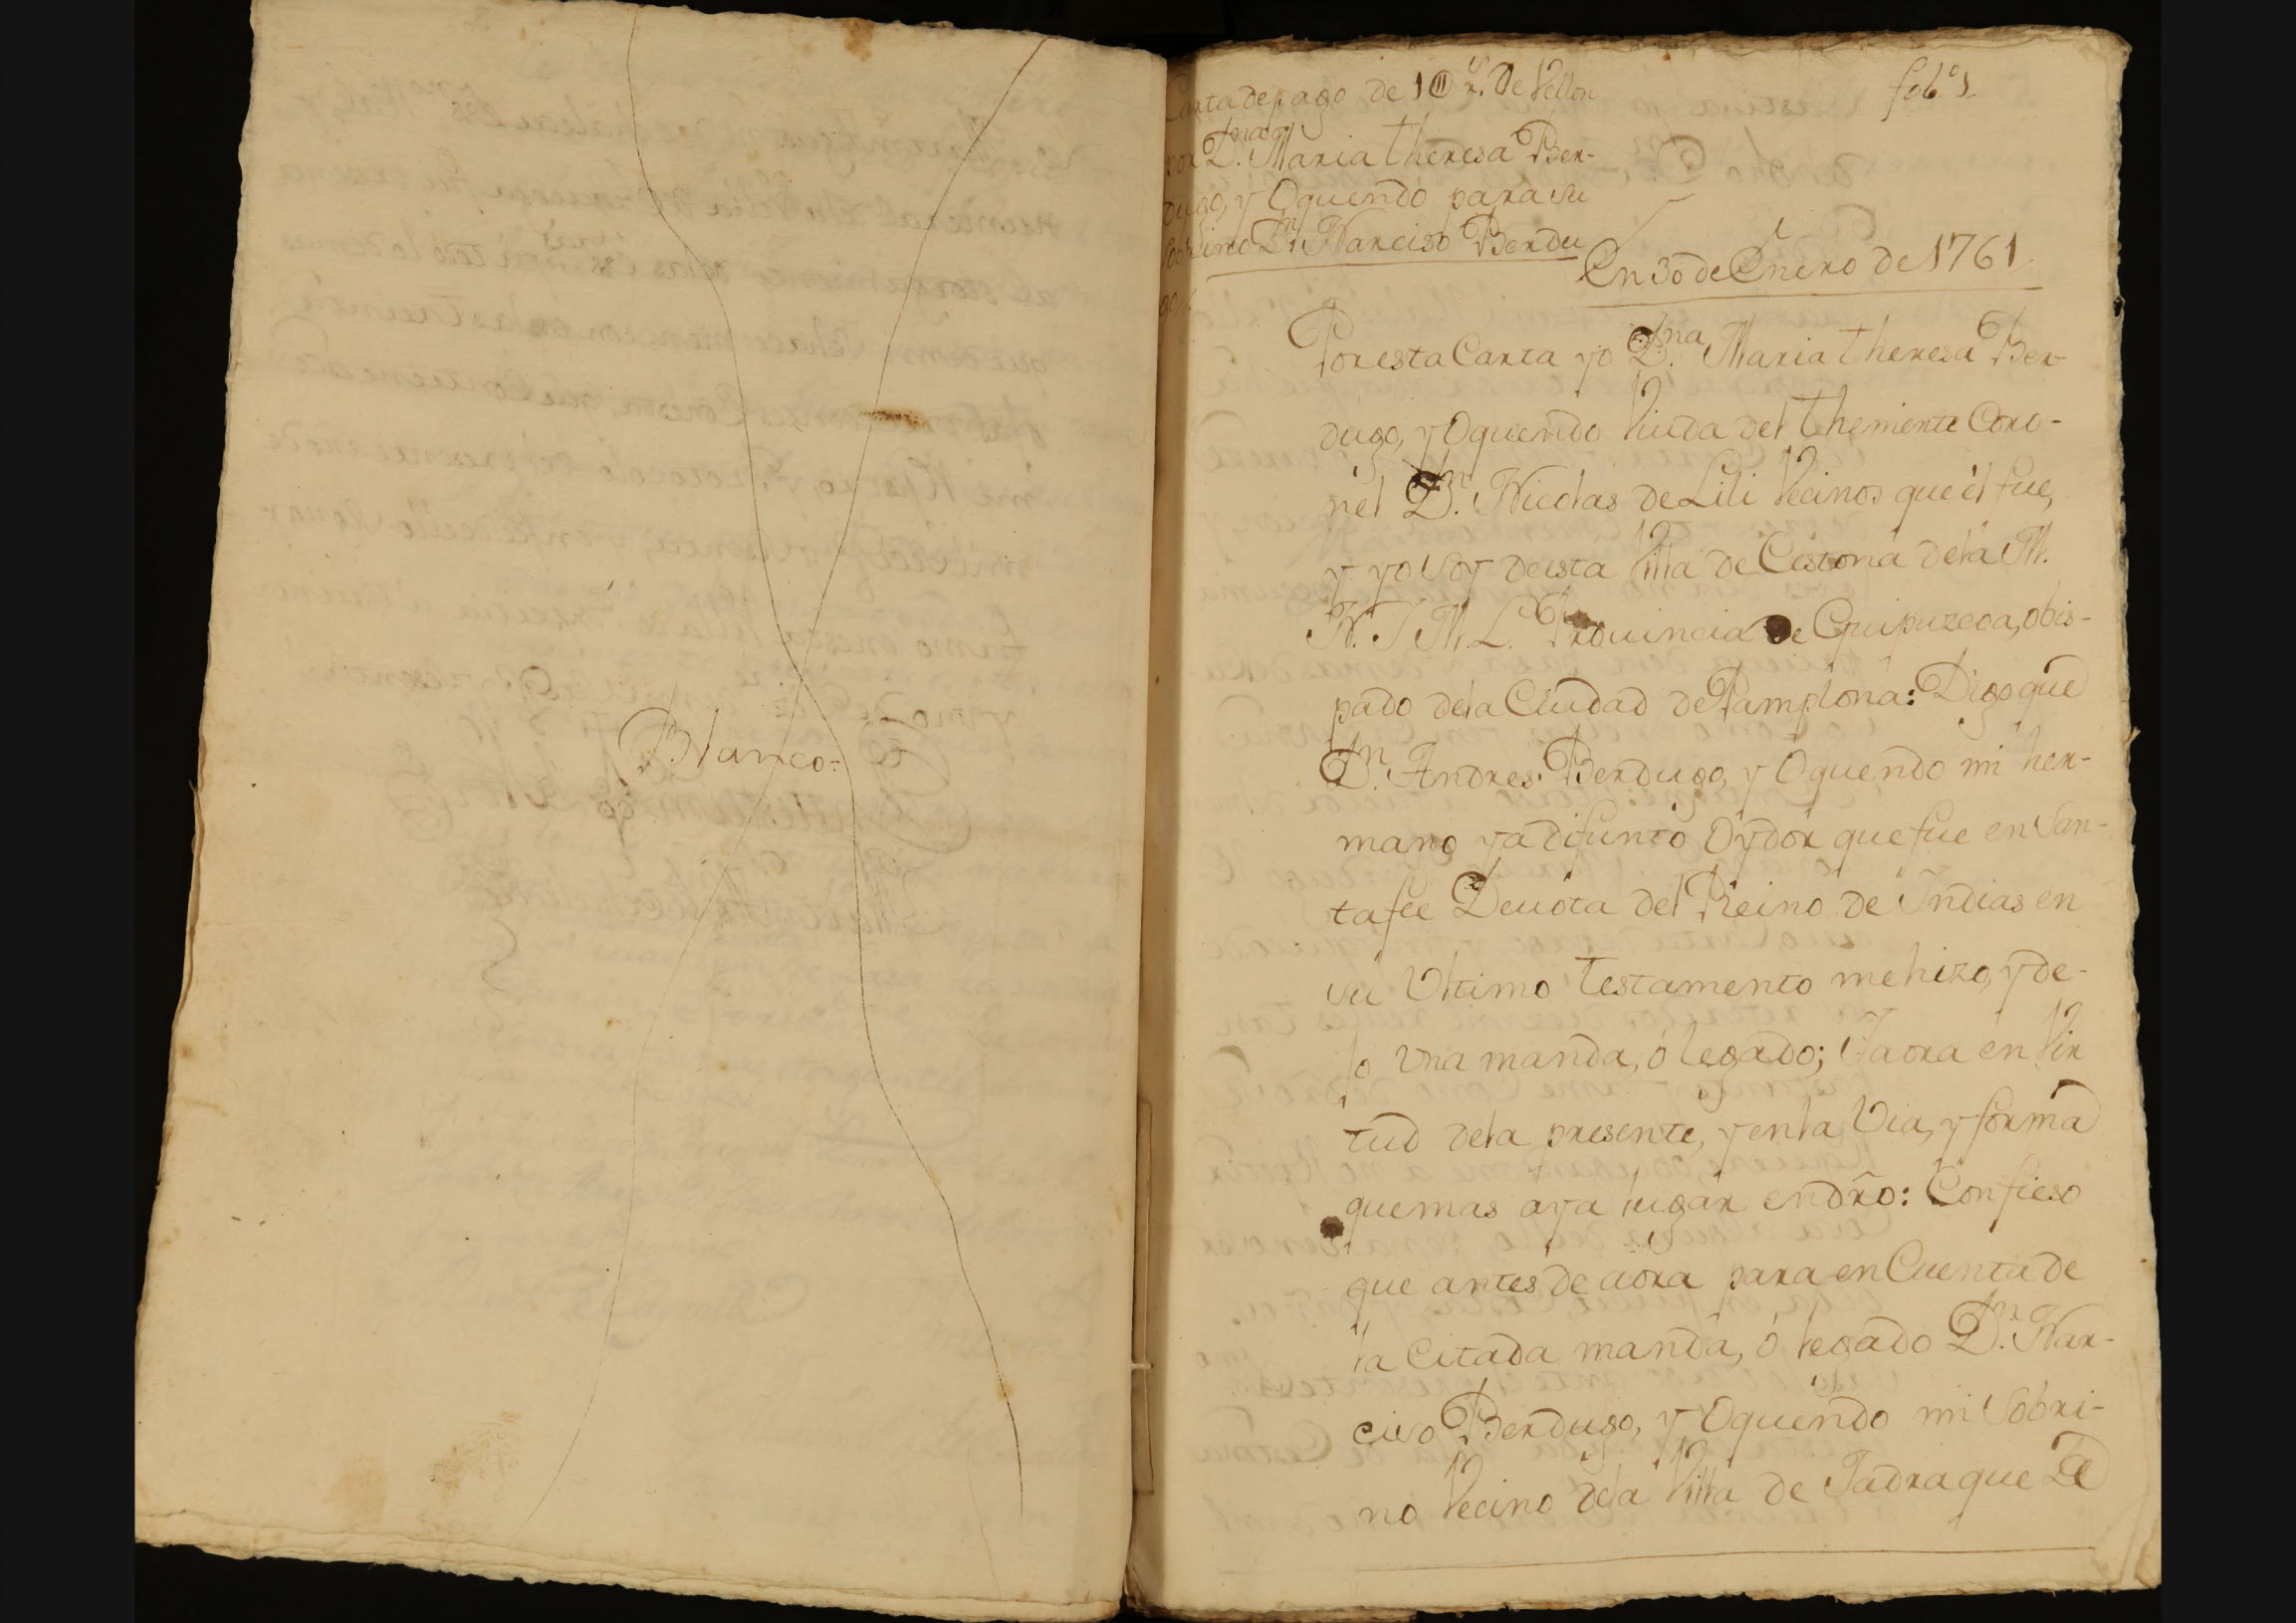 Blanco.
Carta de pago de 10 rs. De Vellon
por Dna. Maria theresa Ber-
dugo, y Oquendo para su
sobrino Dn. Narciso Berdu
go.
fol. 1.
En 30 de Enero de 1761.
Por esta Carta yo Dna. Maria theresa Ber-
dugo, y Oquendo Viuda del theniente Coro-
nel Dn. Nicolas de Lili Vecinos que el fue,
y yo soy desta Villa de Cestona dela M.
N. I M. L. Prouincia de Guipuzcoa, obis-
pado dela Ciudad de Pamplona: Digo que
Dn. Andres Berdugo, y Oquendo mi her-
mano ya difunto Oydor que fue en San-
tafee Deuota del Reino de Indias en
su Ultimo testamento me hizo, y de-
jo Una manda, ó legado; Y aora en Vir
tud dela presente, y en la Via, y forma
que mas aya lugar en dro: Confieso
que antes de aora para en Cuenta de
la Citada manda, ó legado Dn. Nar-
ciso Berdugo, y Oquendo mi Sobri-
no Vecino dela Villa de Jadraque De